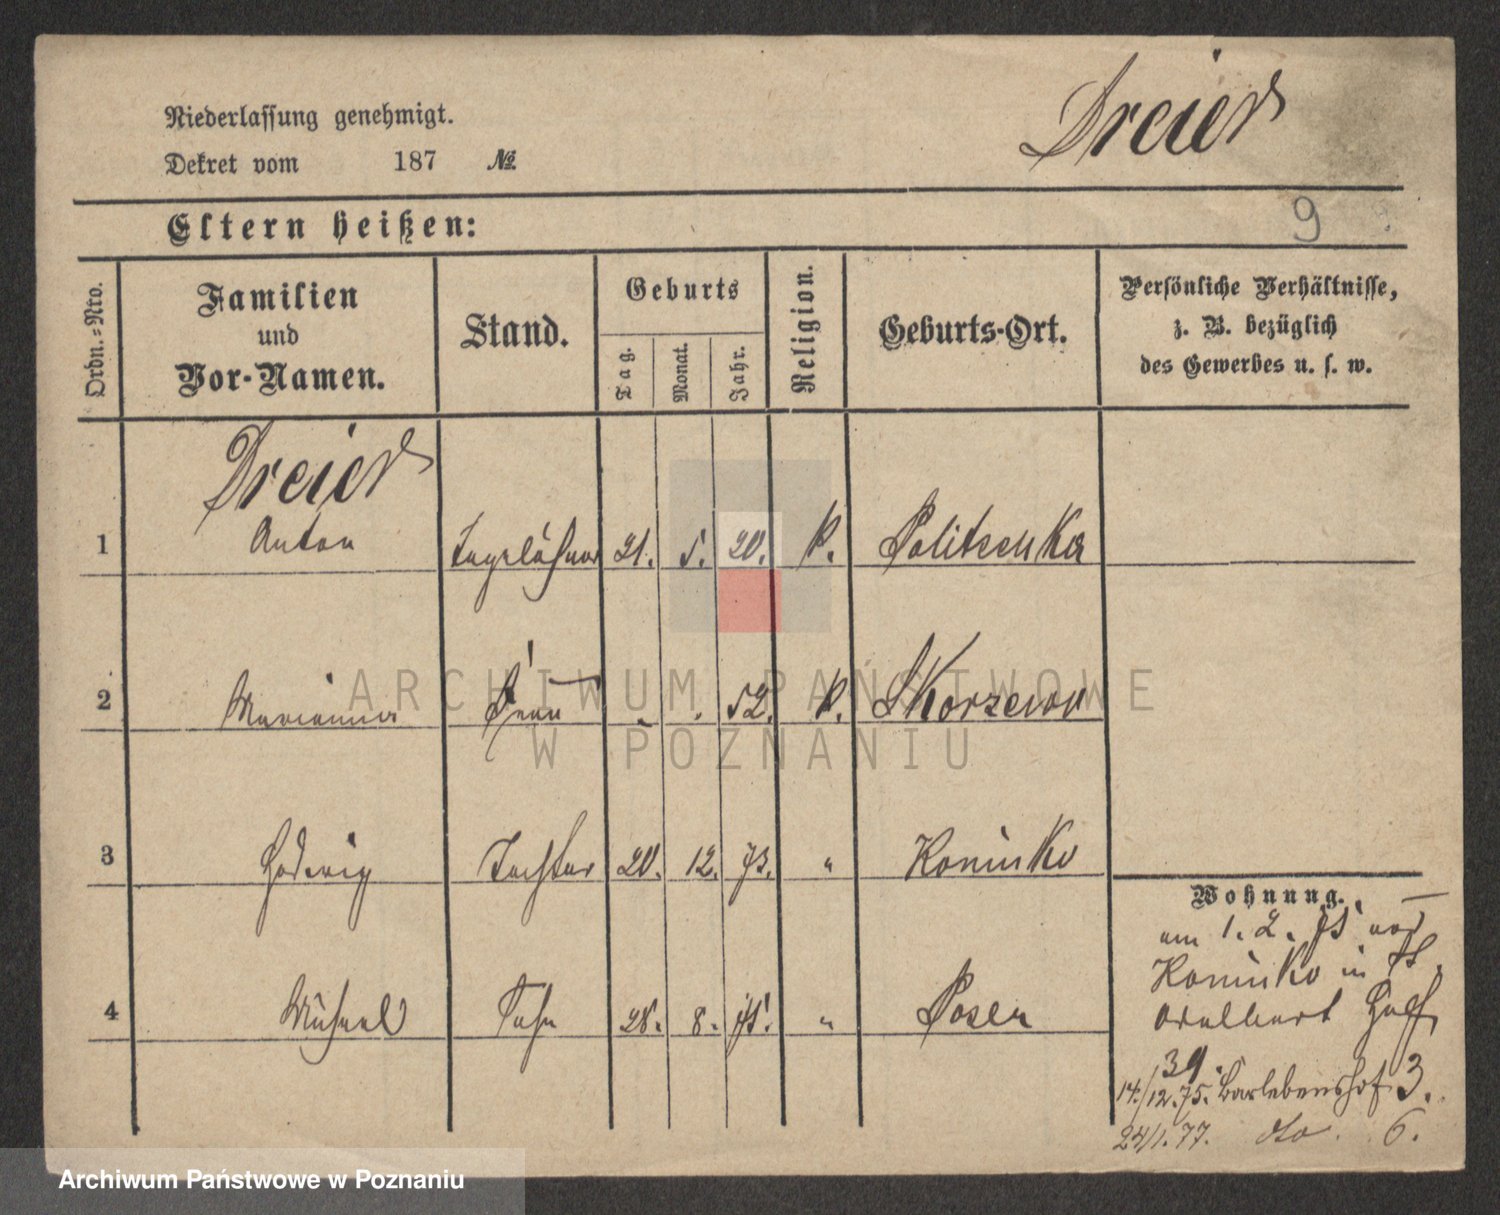 Dreier
Niederlassung genehmigt.
Dekret vom 187 №
Eltern heißen:
9
Ordn.-Nro.
Familien
und
Vor-Namen.
Stand.
Geburts
Tag.
Monat.
Jahr.
Religion.
Geburts-Ort.
Persönliche Verhältnisse,
z. B. bezüglich
des Gewerbes u. s. w.
Dreier
1 Anton Tagelöhner 21. 5. 20. K. Politschka
2 Marianna Frau 52. K. Skorzewo
3 Hedwig Tochter 20. 12. 73. " Koninko
4 Michael Sohn 28. 8. 75. " Posen
Wohnung.
am 1. 2. 75 von
Koninko in St.
Adalbert
39.
14./12.75. Barlebenshof 3.
24/1.77. dto. 6.
ARCHIWUM PAŃSTWOWE
W POZNANIU
Archiwum Państwowe w Poznaniu